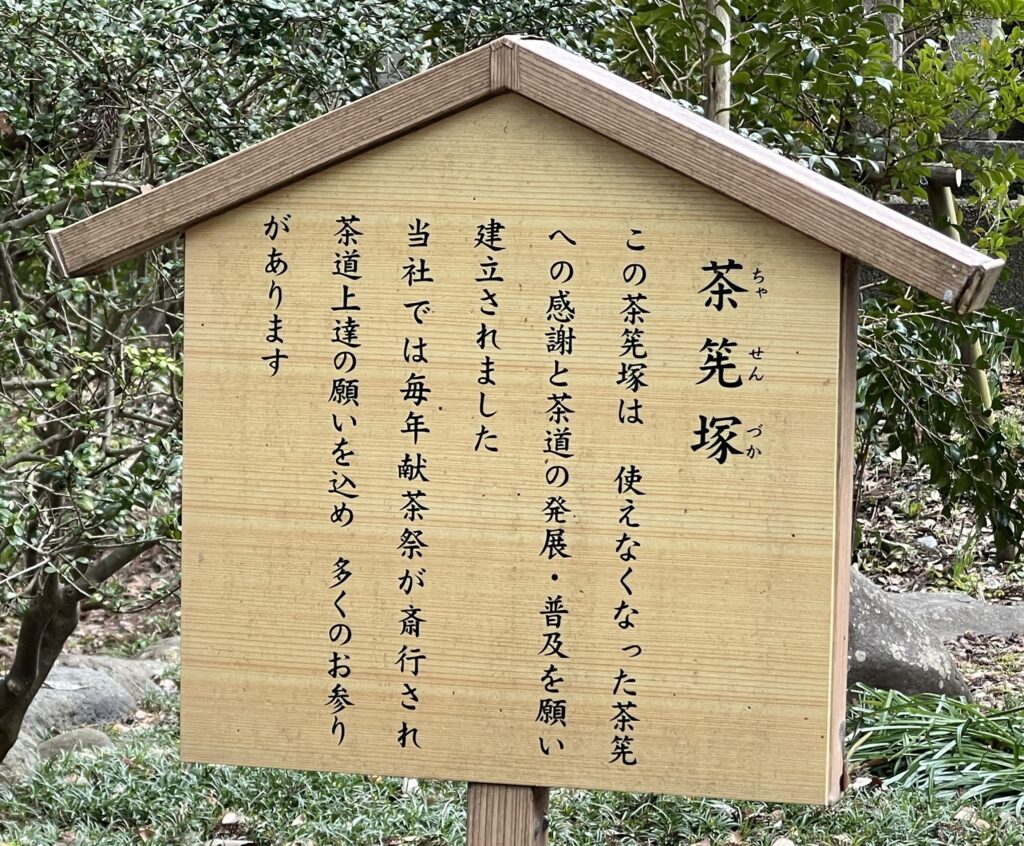 茶筅塚
ちゃせんづか
この茶筅塚は　使えなくなった茶筅
への感謝と茶道の発展・普及を願い
建立されました
当社では毎年献茶祭が斎行され
茶道上達の願いを込め　多くのお参り
があります